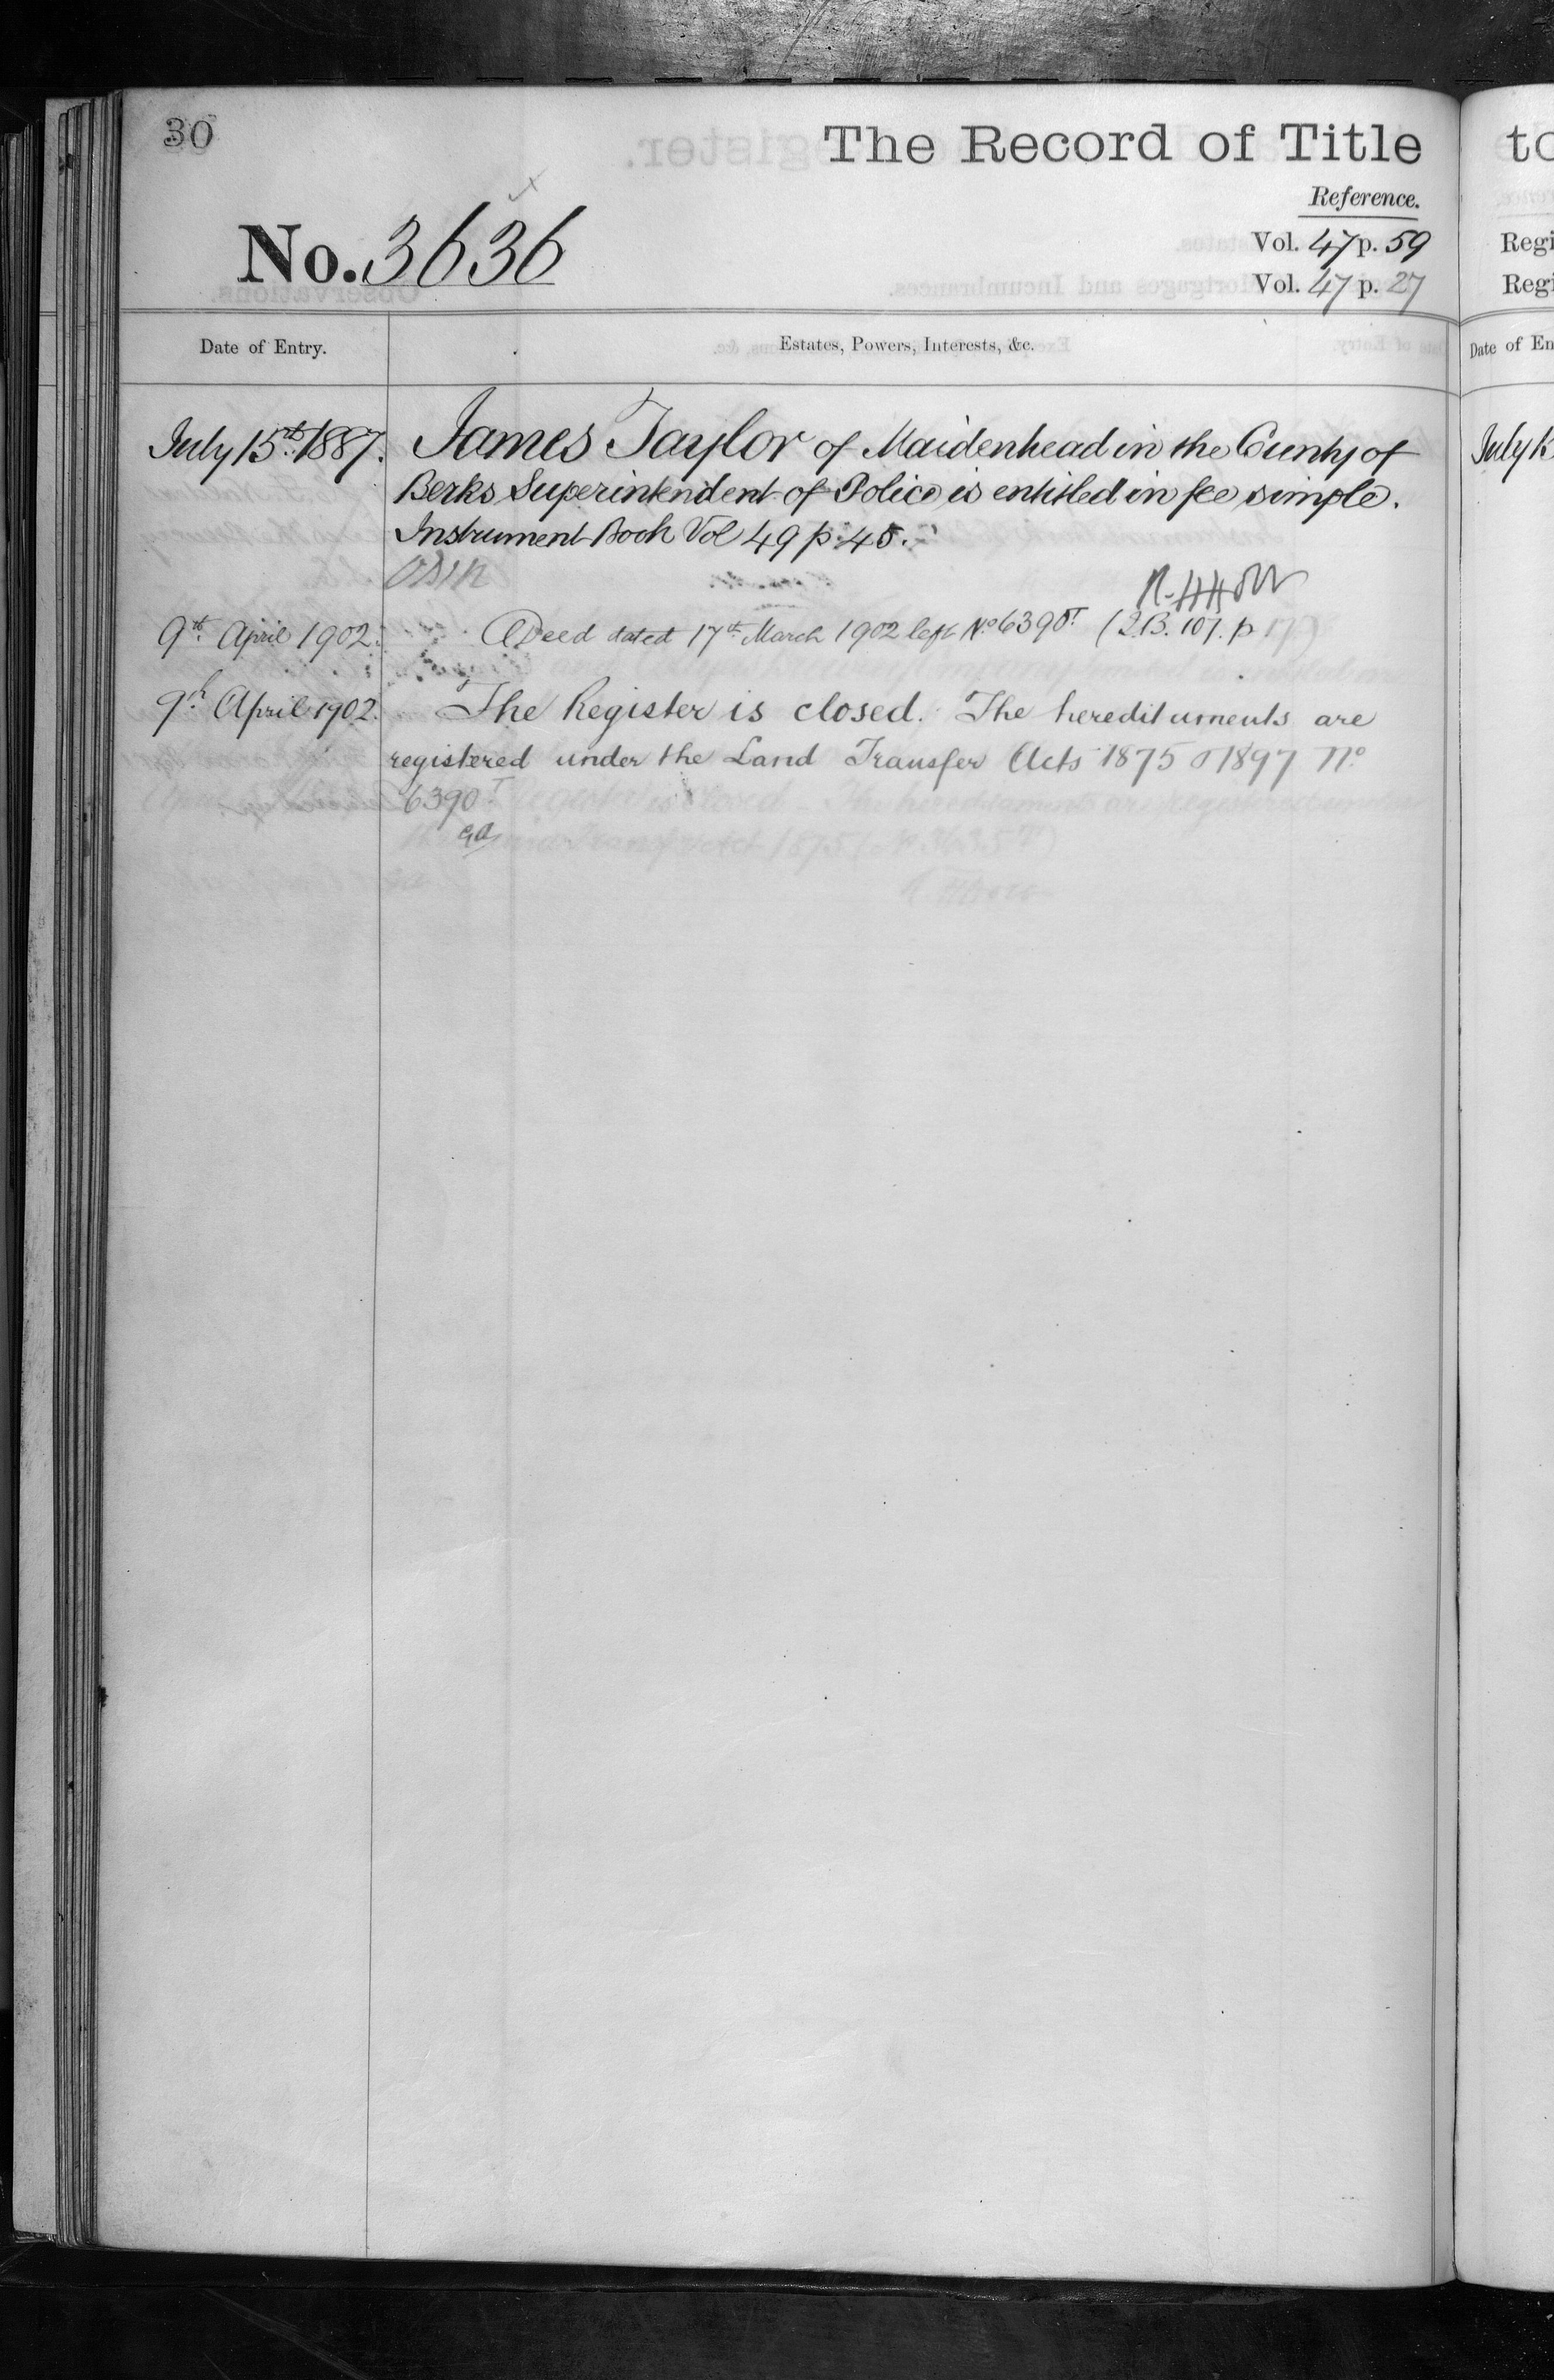 30
The Record of Title
Reference.
No. 3636
Vol. 47 p. 59
Vol. 47 p. 27
Date of Entry.
Estates, Powers, Interests, &c.
July 15th 1887.
James Taylor of Maidenhead in the County of
Berks Superintendent of Police is entitled in fee simple.
Instrument Book Vol 49 p. 45.
9th April 1902.
Deed dated 17th March 1902 left No 6390T (2.B. 107. p 17)
9th April 1902.
The Register is closed. The heredituments are
registered under the Land Transfer Acts 1875 & 1897 No
6390T
to
Regi
Regi
Date of En
July 15